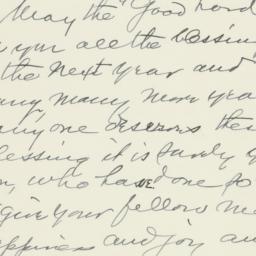 May the "Good Lord
you all the blessin
the next Year and
many, many more yea
anyone deserves the
lessing it is surely y
who have done so
give your fellow me
appiness and joy an